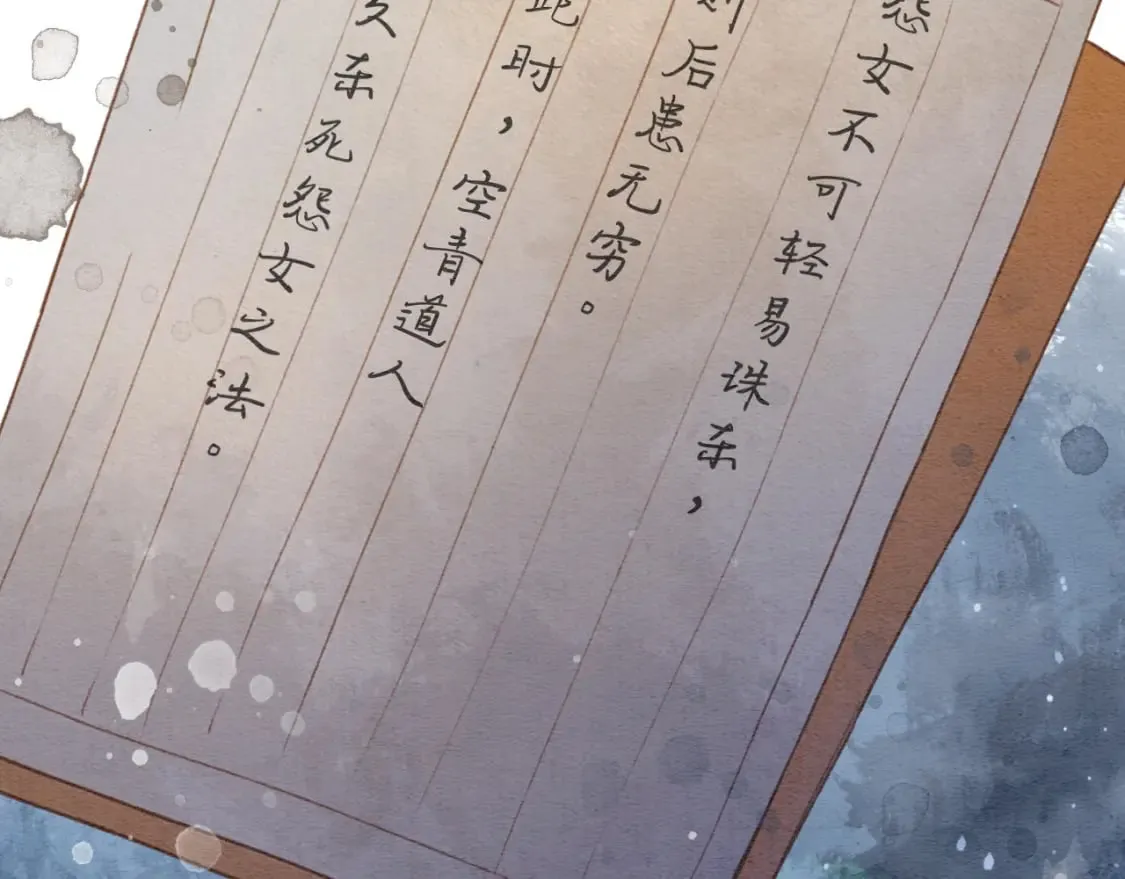 怨女不可轻易诛杀，
则后患无穷。
此时，空青道人
久杀死怨女之法。